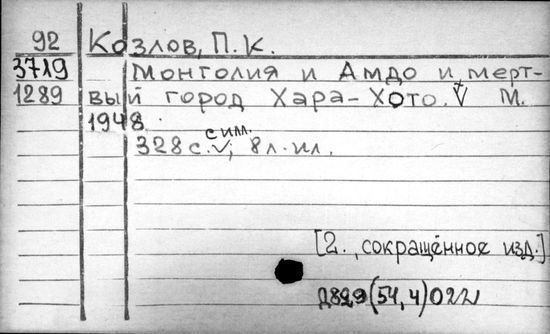 92 Козлов, П. К.
3719 Монголия и Амдо и мерт-
1289 вый город Хара-Хото. М.
1948.
с ил.
328 с.; 8 л. ил.
[2., сокращённое изд.]
Д829(54,4)022